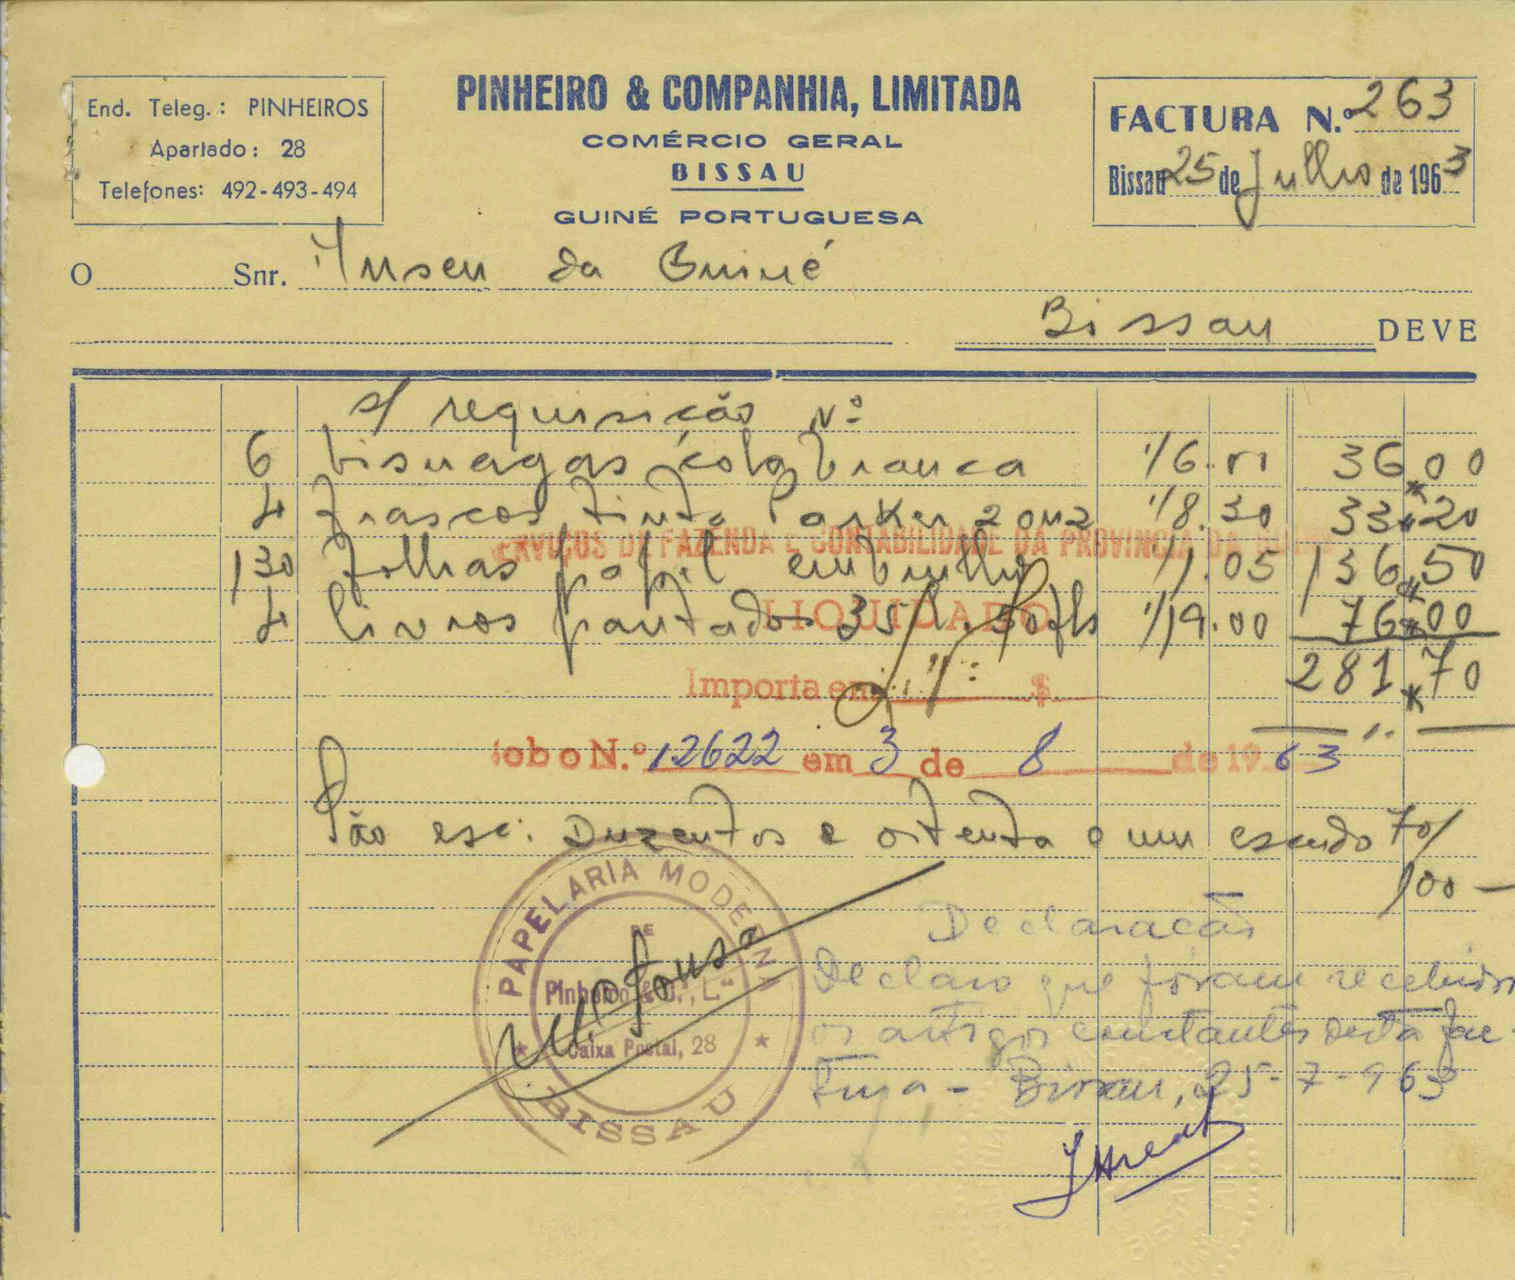 End. Teleg.: PINHEIROS
Apartado: 28
Telefones: 492-493-494
PINHEIRO & COMPANHIA, LIMITADA
COMÉRCIO GERAL
BISSAU
GUINÉ PORTUGUESA
FACTURA N.º 263
Bissau 25 de Julho de 1963
O Snr. Museu da Guiné
Bissau DEVE
s/ requisição Nº
6 bisnagas cola branca 1/6.00 36,00
4 frascos tinta Parker 2 onz 1/8.30 33,20
SERVIÇOS DE FAZENDA E CONTABILIDADE DA PROVINCIA DA
130 folhas papel embrulho 1/1.05 136,50
4 livros pautados 35/ 50 fls 1/19.00 76,00
LIQUIDADO
281,70
Importa em $
N.º 12622 em 3 de 8 de 1963
São esc: Duzentos e oitenta e um escudo 70/
100 —
PAPELARIA MODERNA
DE
Pinheiro & C.ª, L.da
Caixa Postal, 28
BISSAU
Declaração
Declaro que foram recebidos
os artigos constantes desta fac-
tura - Bissau, 25-7-963